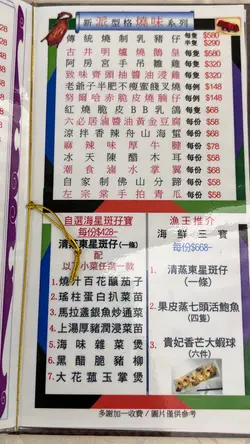 新派型格燒味系列
傳統燒制乳豬仔 每隻 $580
古井明爐燒鵝皇 每隻 $290
阿房宮手吊雞 每隻 $380
致味齊頭抽醬油浸雞 每隻 $320
老爺子半肥不瘦蜜餞叉燒 每例 $168
努爾哈赤脆皮燒腩仔 每例 $148
紅燒脆皮BB乳鴿 每隻 $68
六必居滷醬油黃金豆腐 每例 $58
涼拌香辣舟山海蜇 每例 $68
麻辣味厚牛𦟌 每例 $78
冰天陳醋木耳 每例 $58
潮食滷水掌翼 每例 $58
自家制佛山分蹄 每例 $58
左宗棠手拍青瓜 每例 $58
自選海星斑孖寶
每份$428-
清蒸東星斑仔(一條)
配
以下小菜任選一款
1. 燒汁百花釀茄子
2. 瑤柱蛋白扒菜苗
3. 馬拉盞銀魚炒通菜
4. 上湯厚豬潤浸菜苗
5. 海味雜菜煲
6. 黑醋脆豬柳
7. 大花菰玉掌煲
漁王推介
海鮮三寶
每份$668-
1. 清蒸東星斑仔
(一條)
2. 果皮蒸七頭活鮑魚
(四隻)
3. 貴妃香芒大蝦球
(六件)
多謝加一收費/圖片僅供參考